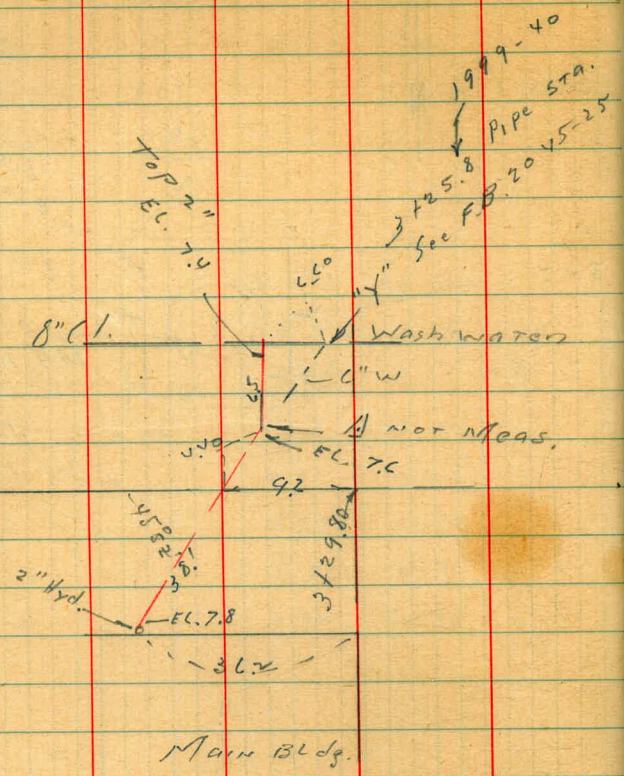 1999-40
3+25.8 Pipe Sta.
See F.B. 20 45-25
Top 2"
EL. 7.4
"Y"
8" C.I.
Wash Water
6" W
Not Meas.
EL. 7.6
9.2
3+29.80
38.1
2" Hyd.
EL. 7.8
36.2
Main Bldg.